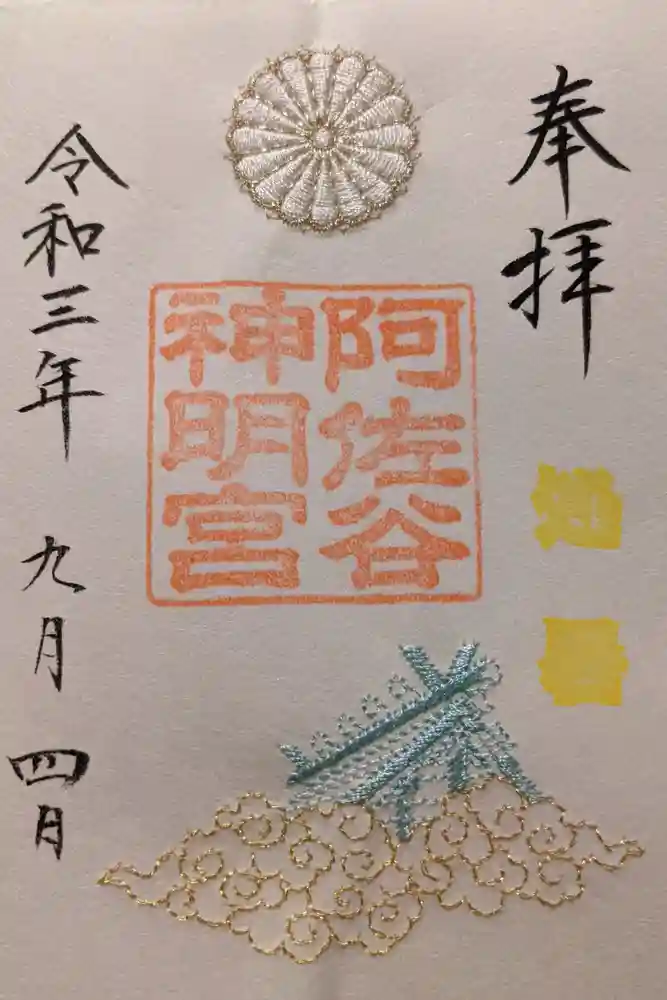 奉拝
阿佐谷
神明宮
令和三年 九月 四日